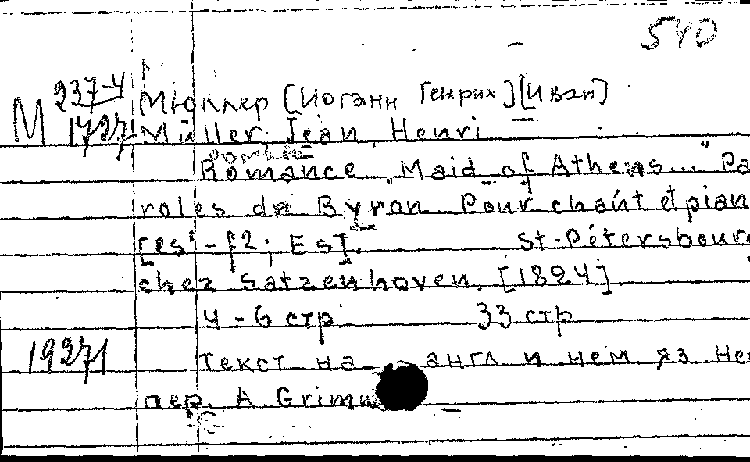 540
М 237-4
1727
Мюллер [Иоганн Генрих] [Иван]
Müller Jean Henri
Romance „Maid of Athens..." Pa
roles de Byron Pour chant et pian
[es'-f2; Es]. St-Pétersbour
chez Satzenhoven. [1824]
4-6 стр. 33 стр
19271
Текст на англ и нем яз Не
пер. A